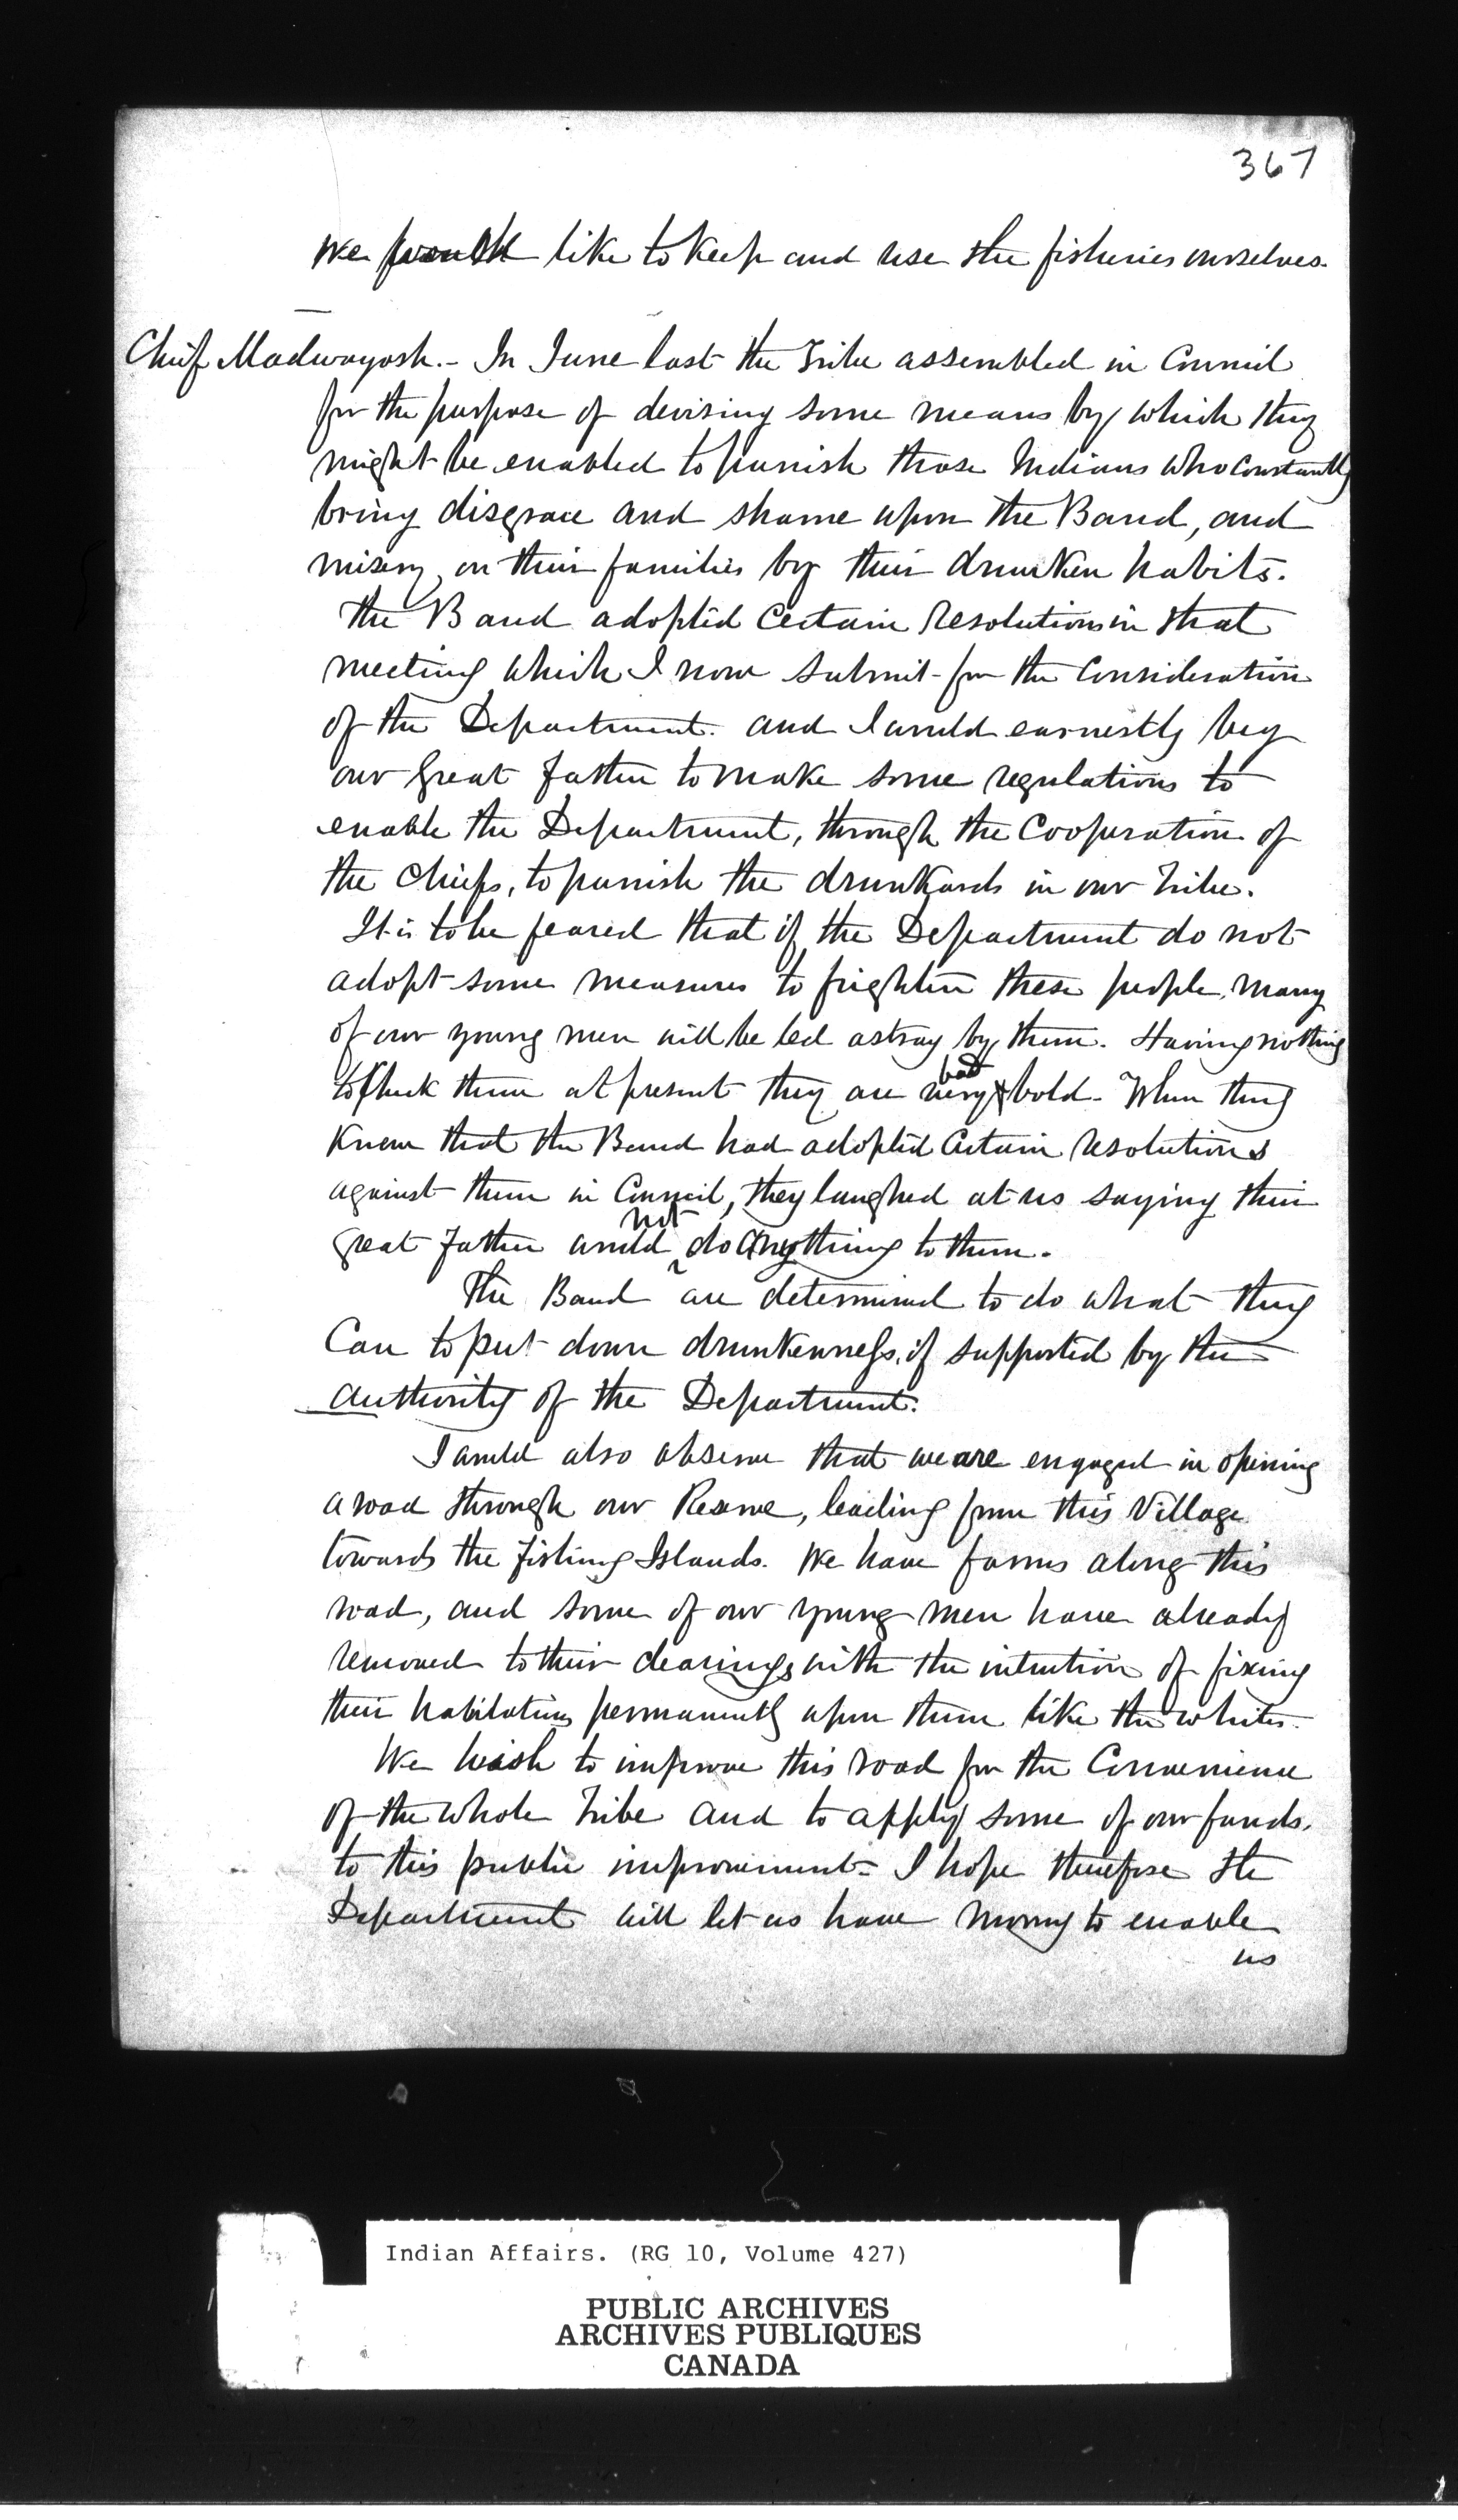 367
We would like to keep and use the fisheries ourselves.
Chief Madwayosh.- In June last the Tribe assembled in Council
for the purpose of devising some means by which they
might be enabled to punish those Indians who constantly
bring disgrace and shame upon the Band, and
misery on their families by their drunken habits.
The Band adopted certain resolutions in that
meeting which I now submit for the consideration
of the Department. and I would earnestly beg
our Great Father to make some regulations to
enable the Department, through the Cooperation of
the Chiefs, to punish the drunkards in our Tribe.
It is to be feared that if the Department do not
adopt some measures to frighten these people, many
of our young men will be led astray by them. Having nothing
to check them at present they are very bad & bold. When they
knew that the Band had adopted certain resolutions
against them in Council, they laughed at us saying their
great Father would not do anything to them.
The Band are determined to do what they
Can to put down drunkenness, if supported by the
authority of the Department.
I would also observe that we are engaged in opening
a road through our Reserve, leading from this Village
towards the Fishing Islands. We have farms along this
road, and some of our young men have already
removed to their clearings with the intention of fixing
their habitations permanently upon them like the whites.
We wish to improve this road for the Convenience
of the whole Tribe and to apply some of our funds.
to this public improvement- I hope therefore the
Department will let us have money to enable
us
Indian Affairs. (RG 10, Volume 427)
PUBLIC ARCHIVES
ARCHIVES PUBLIQUES
CANADA